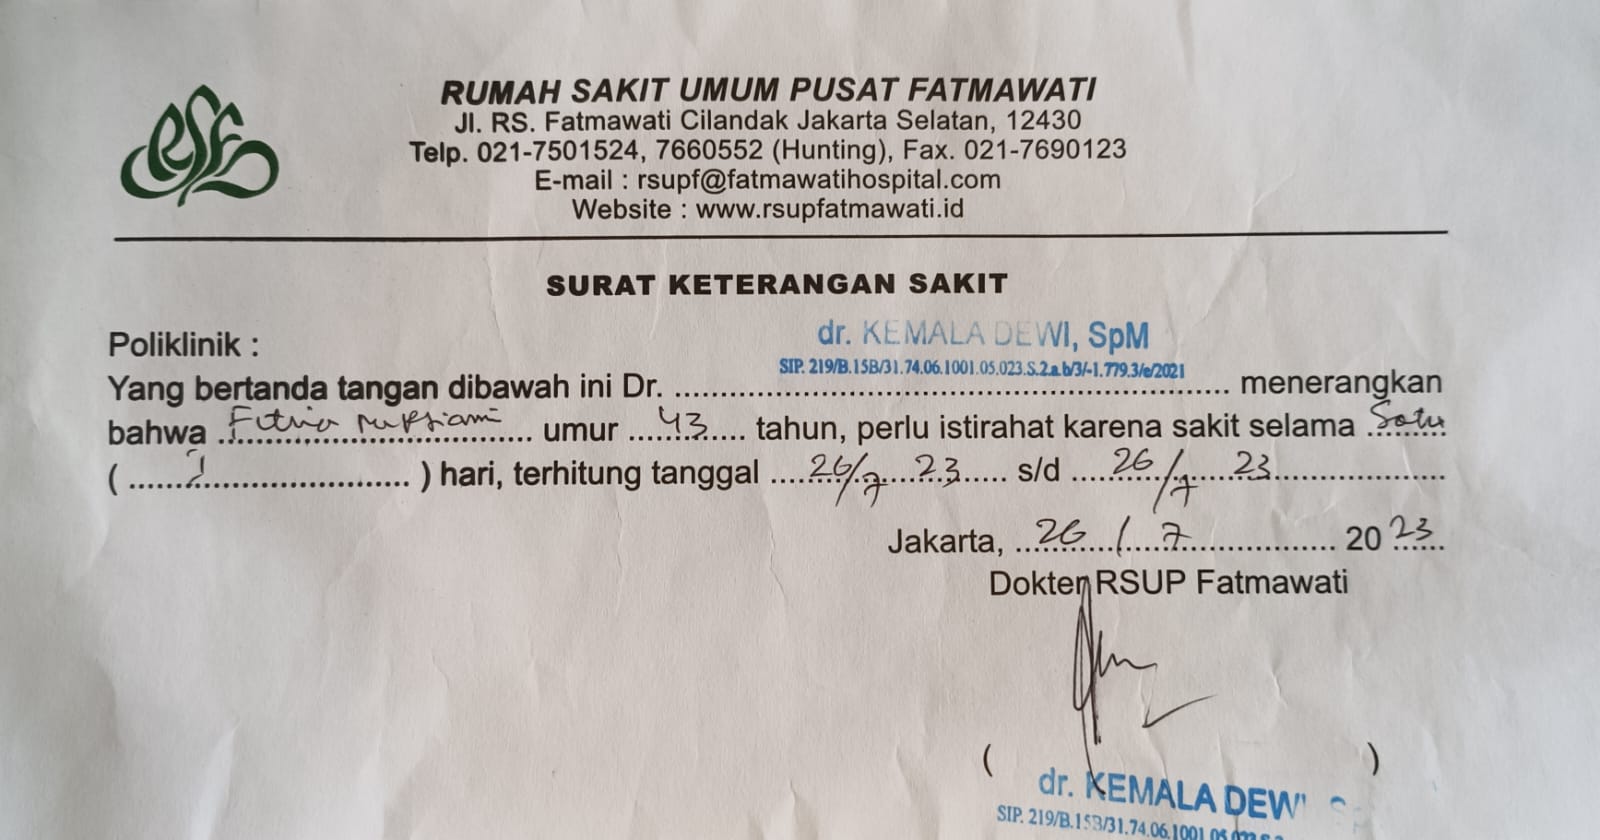 RSF
RUMAH SAKIT UMUM PUSAT FATMAWATI
Jl. RS. Fatmawati Cilandak Jakarta Selatan, 12430
Telp. 021-7501524, 7660552 (Hunting), Fax. 021-7690123
E-mail : rsupf@fatmawatihospital.com
Website : www.rsupfatmawati.id
SURAT KETERANGAN SAKIT
Poliklinik :
dr. KEMALA DEWI, SpM
SIP. 219/B.15B/31.74.06.1001.05.023.S.2.a.b/3/-1.779.3/e/2021
Yang bertanda tangan dibawah ini Dr. ........ menerangkan
bahwa Fitria umur 43 tahun, perlu istirahat karena sakit selama Satu
( 1 ) hari, terhitung tanggal 26/7 23 s/d 26/7 23
Jakarta, 26 / 7 2023
Dokter RSUP Fatmawati
( )
dr. KEMALA DEW
SIP. 219/B.15B/31.74.06.1001.05